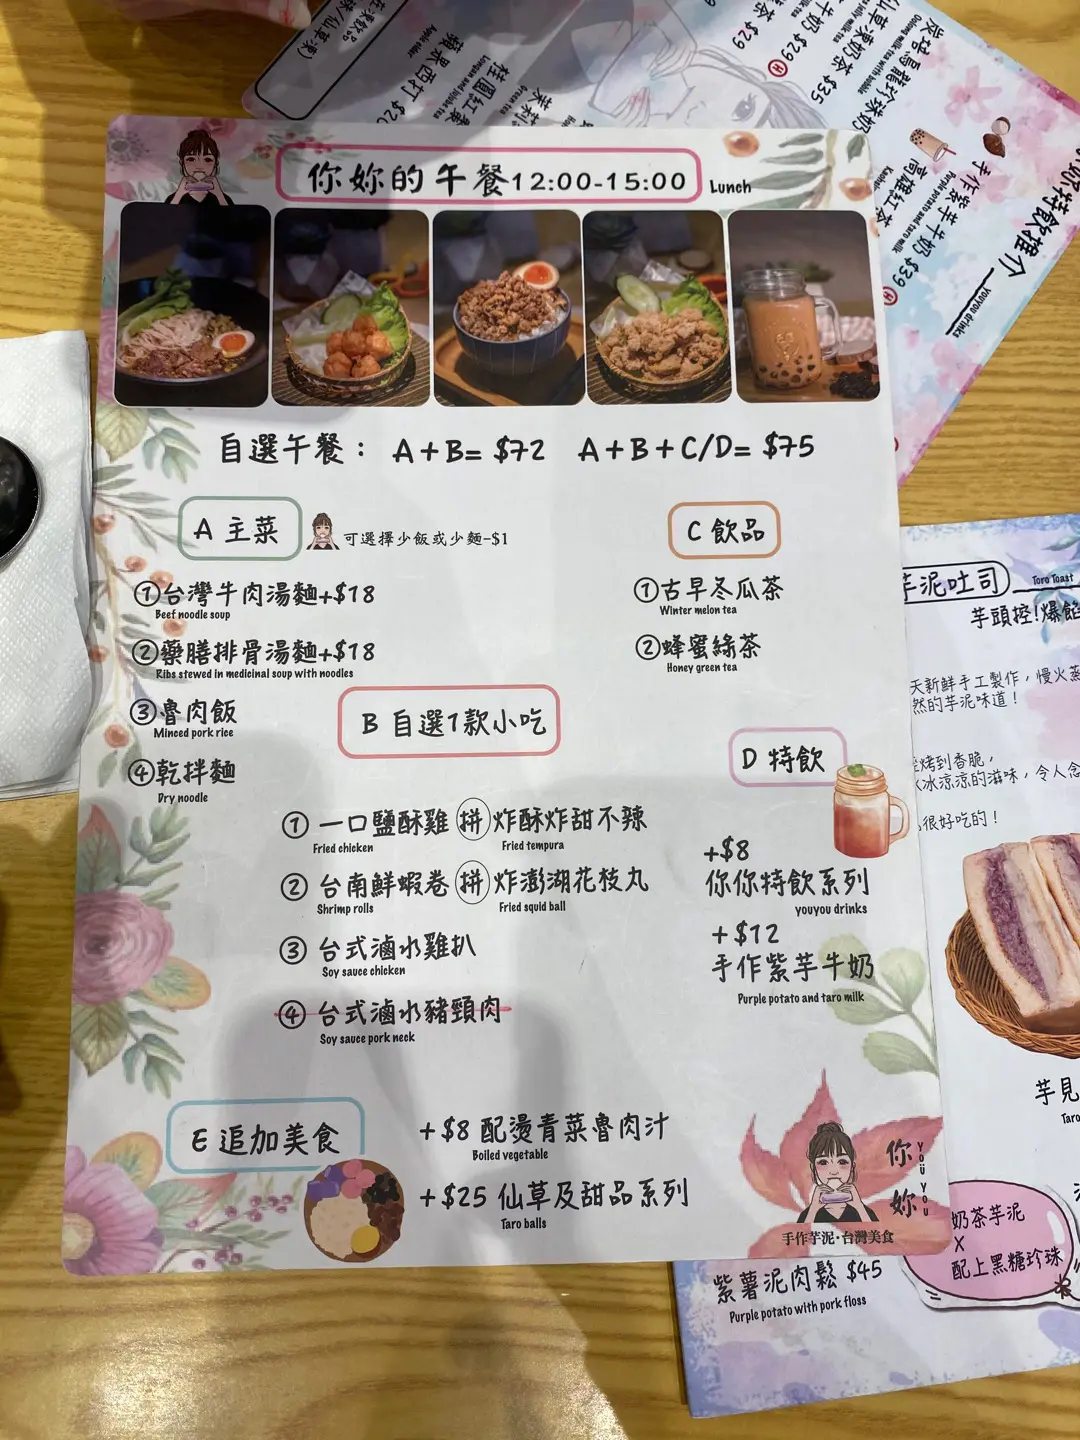 你妳的午餐12:00-15:00 Lunch
自選午餐： A+B= $72 A+B+C/D= $75
A 主菜
可選擇少飯或少麵-$1
①台灣牛肉湯麵+$18
Beef noodle soup
②藥膳排骨湯麵+$18
Ribs stewed in medicinal soup with noodles
③魯肉飯
Minced pork rice
④乾拌麵
Dry noodle
C 飲品
①古早冬瓜茶
Winter melon tea
②蜂蜜綠茶
Honey green tea
B 自選1款小吃
① 一口鹽酥雞 拼 炸酥炸甜不辣
Fried chicken Fried tempura
② 台南鮮蝦卷 拼 炸澎湖花枝丸
Shrimp rolls Fried squid ball
③ 台式滷水雞扒
Soy sauce chicken
④ 台式滷水豬頸肉
Soy sauce pork neck
D 特飲
+$8
你你特飲系列
youyou drinks
+$12
手作紫芋牛奶
Purple potato and taro milk
E 追加美食
+$8 配燙青菜魯肉汁
Boiled vegetable
+$25 仙草及甜品系列
Taro balls
你妳
YOU YOU
手作芋泥·台灣美食
蘋果西打
Apple cider
桂圓紅棗
$29
$29
$35
Oolong milk tea with bubble
高雄紅茶
手作紫芋牛奶 $39
Purple potato and taro milk
特飲推介
youyou drinks
芋泥吐司 Toro Toast
芋頭控!爆餡
天新鮮手工製作，慢火蒸
然的芋泥味道！
烤到香脆，
冰涼涼的滋味，令人念
很好吃的！
芋見
Taro
奶茶芋泥
X
配上黑糖珍珠
紫薯泥肉鬆 $45
Purple potato with pork floss